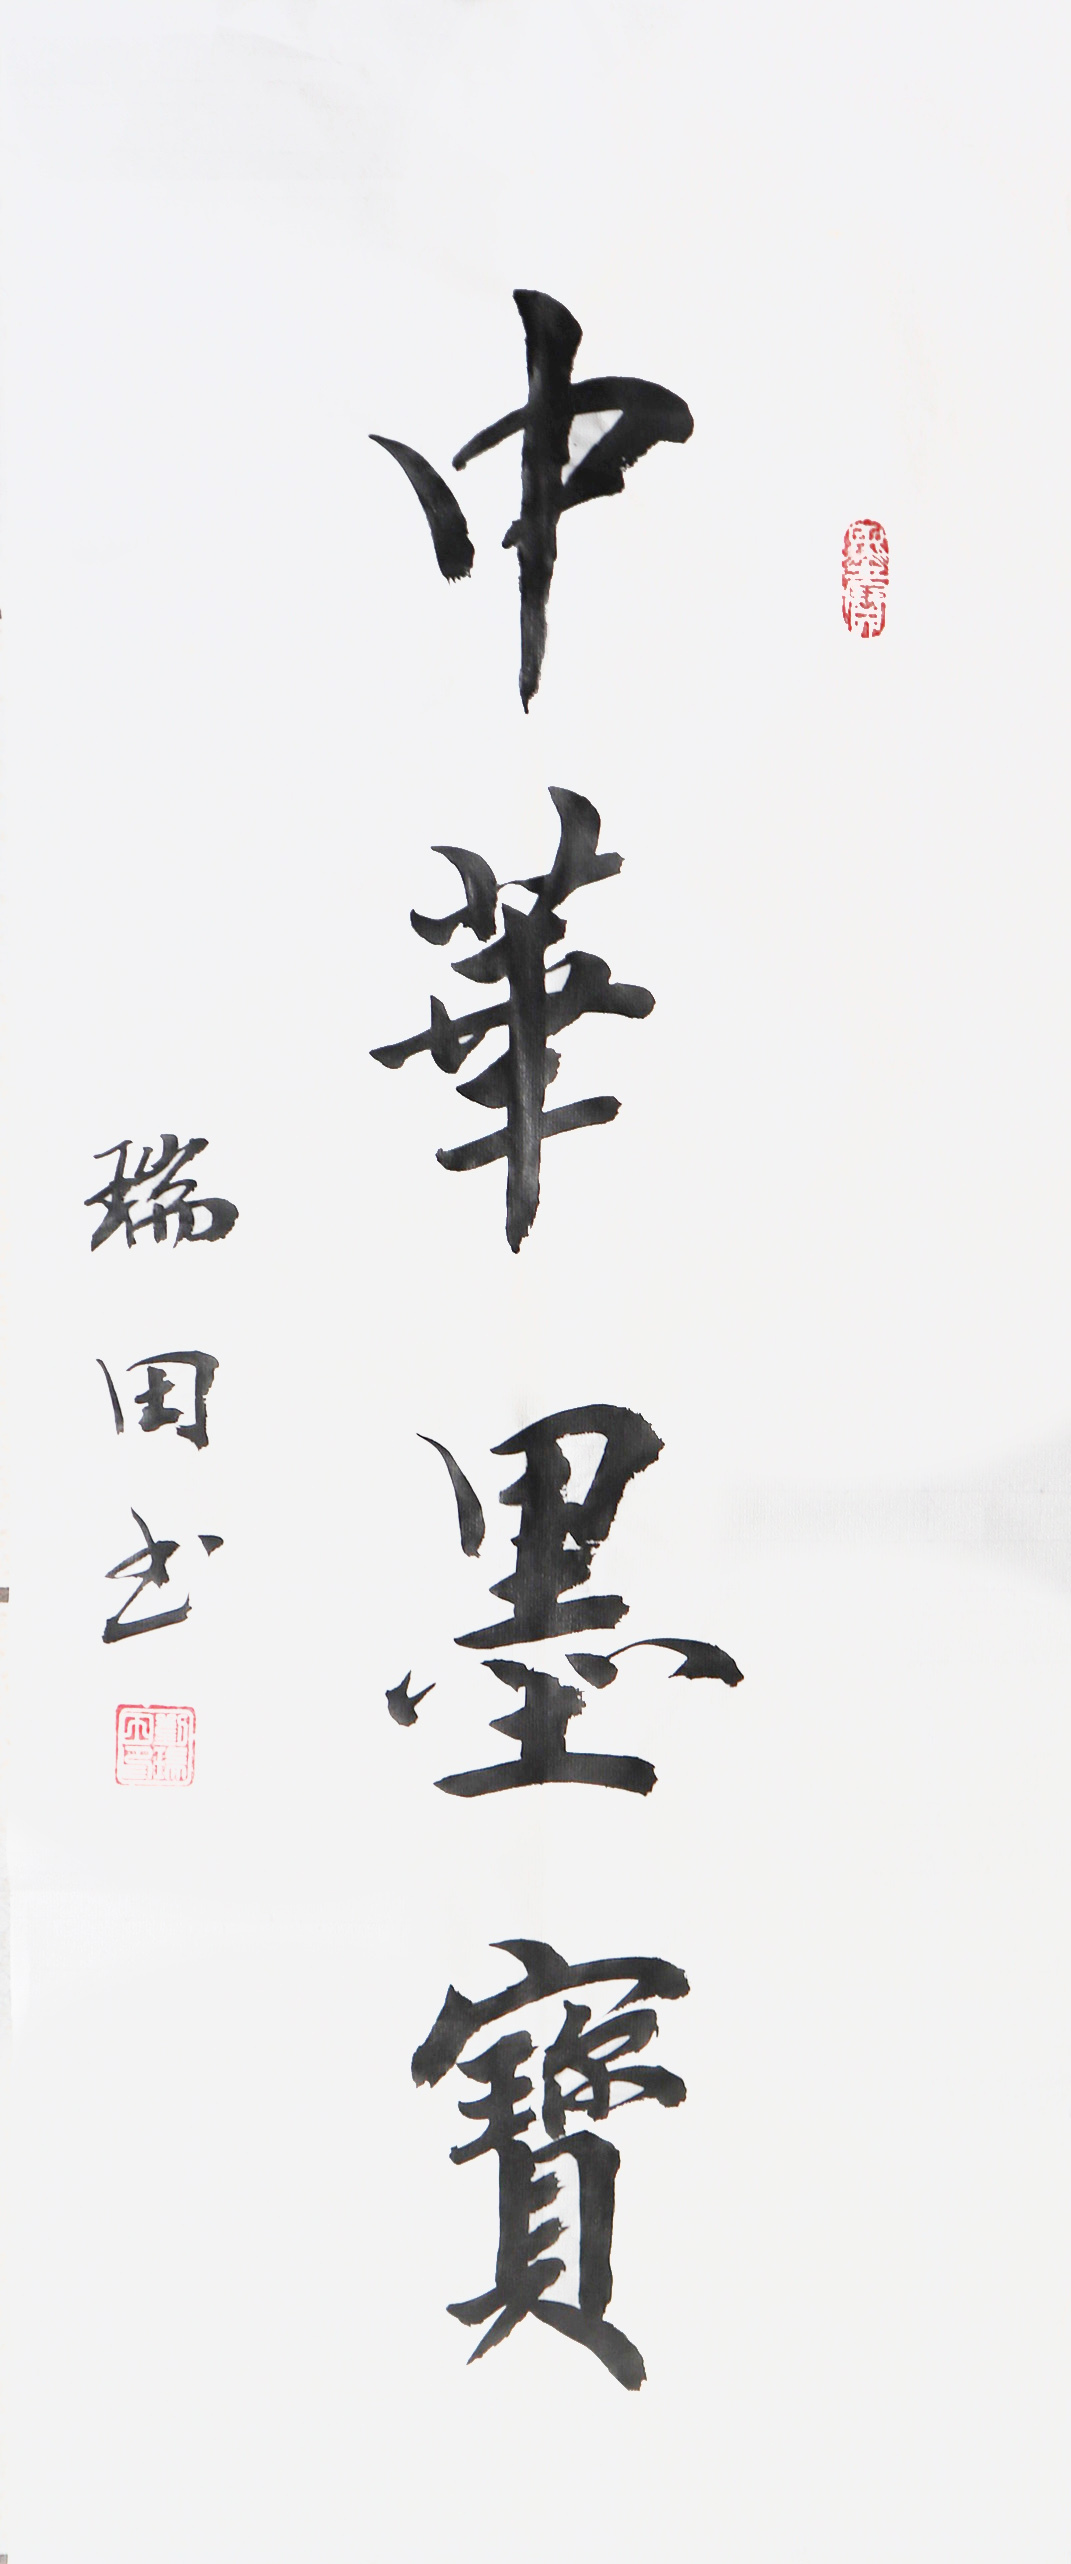 中華墨寶
瑞田书